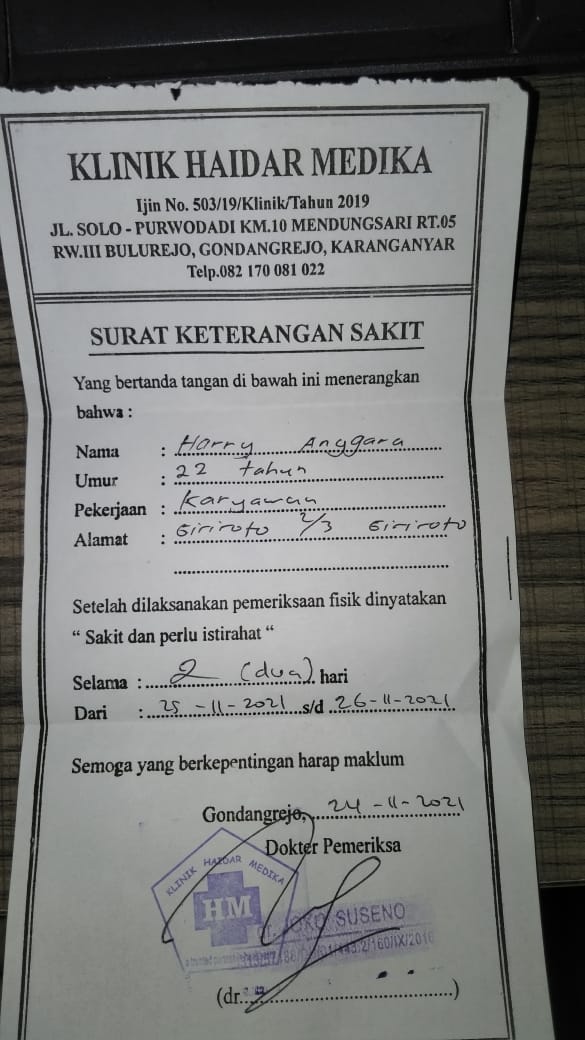 KLINIK HAIDAR MEDIKA
Ijin No. 503/19/Klinik/Tahun 2019
JL. SOLO - PURWODADI KM.10 MENDUNGSARI RT.05
RW.III BULUREJO, GONDANGREJO, KARANGANYAR
Telp.082 170 081 022
SURAT KETERANGAN SAKIT
Yang bertanda tangan di bawah ini menerangkan
bahwa :
Nama : Harry Anggara
Umur : 22 tahun
Pekerjaan : Karyawan
Alamat : Giriroto 2/3 Giriroto
Setelah dilaksanakan pemeriksaan fisik dinyatakan
“ Sakit dan perlu istirahat “
Selama : 2 (dua) hari
Dari : 25 -11-2021 s/d 26-11-2021
Semoga yang berkepentingan harap maklum
Gondangrejo, 24 -11-2021
Dokter Pemeriksa
KLINIK HAIDAR MEDIKA
HM
dr. JOKO SUSENO
(dr. )